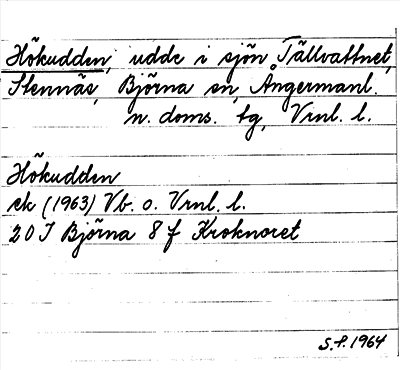 Hökudden, udde i sjön Tällvattnet,
Stennäs, Björna sn, Ångermanl.
n. doms. tg, Vrnl. l.
Hökudden
ek (1963) Vb. o. Vrnl. l.
20 I Björna 8 f Kroknoret
S.P. 1964